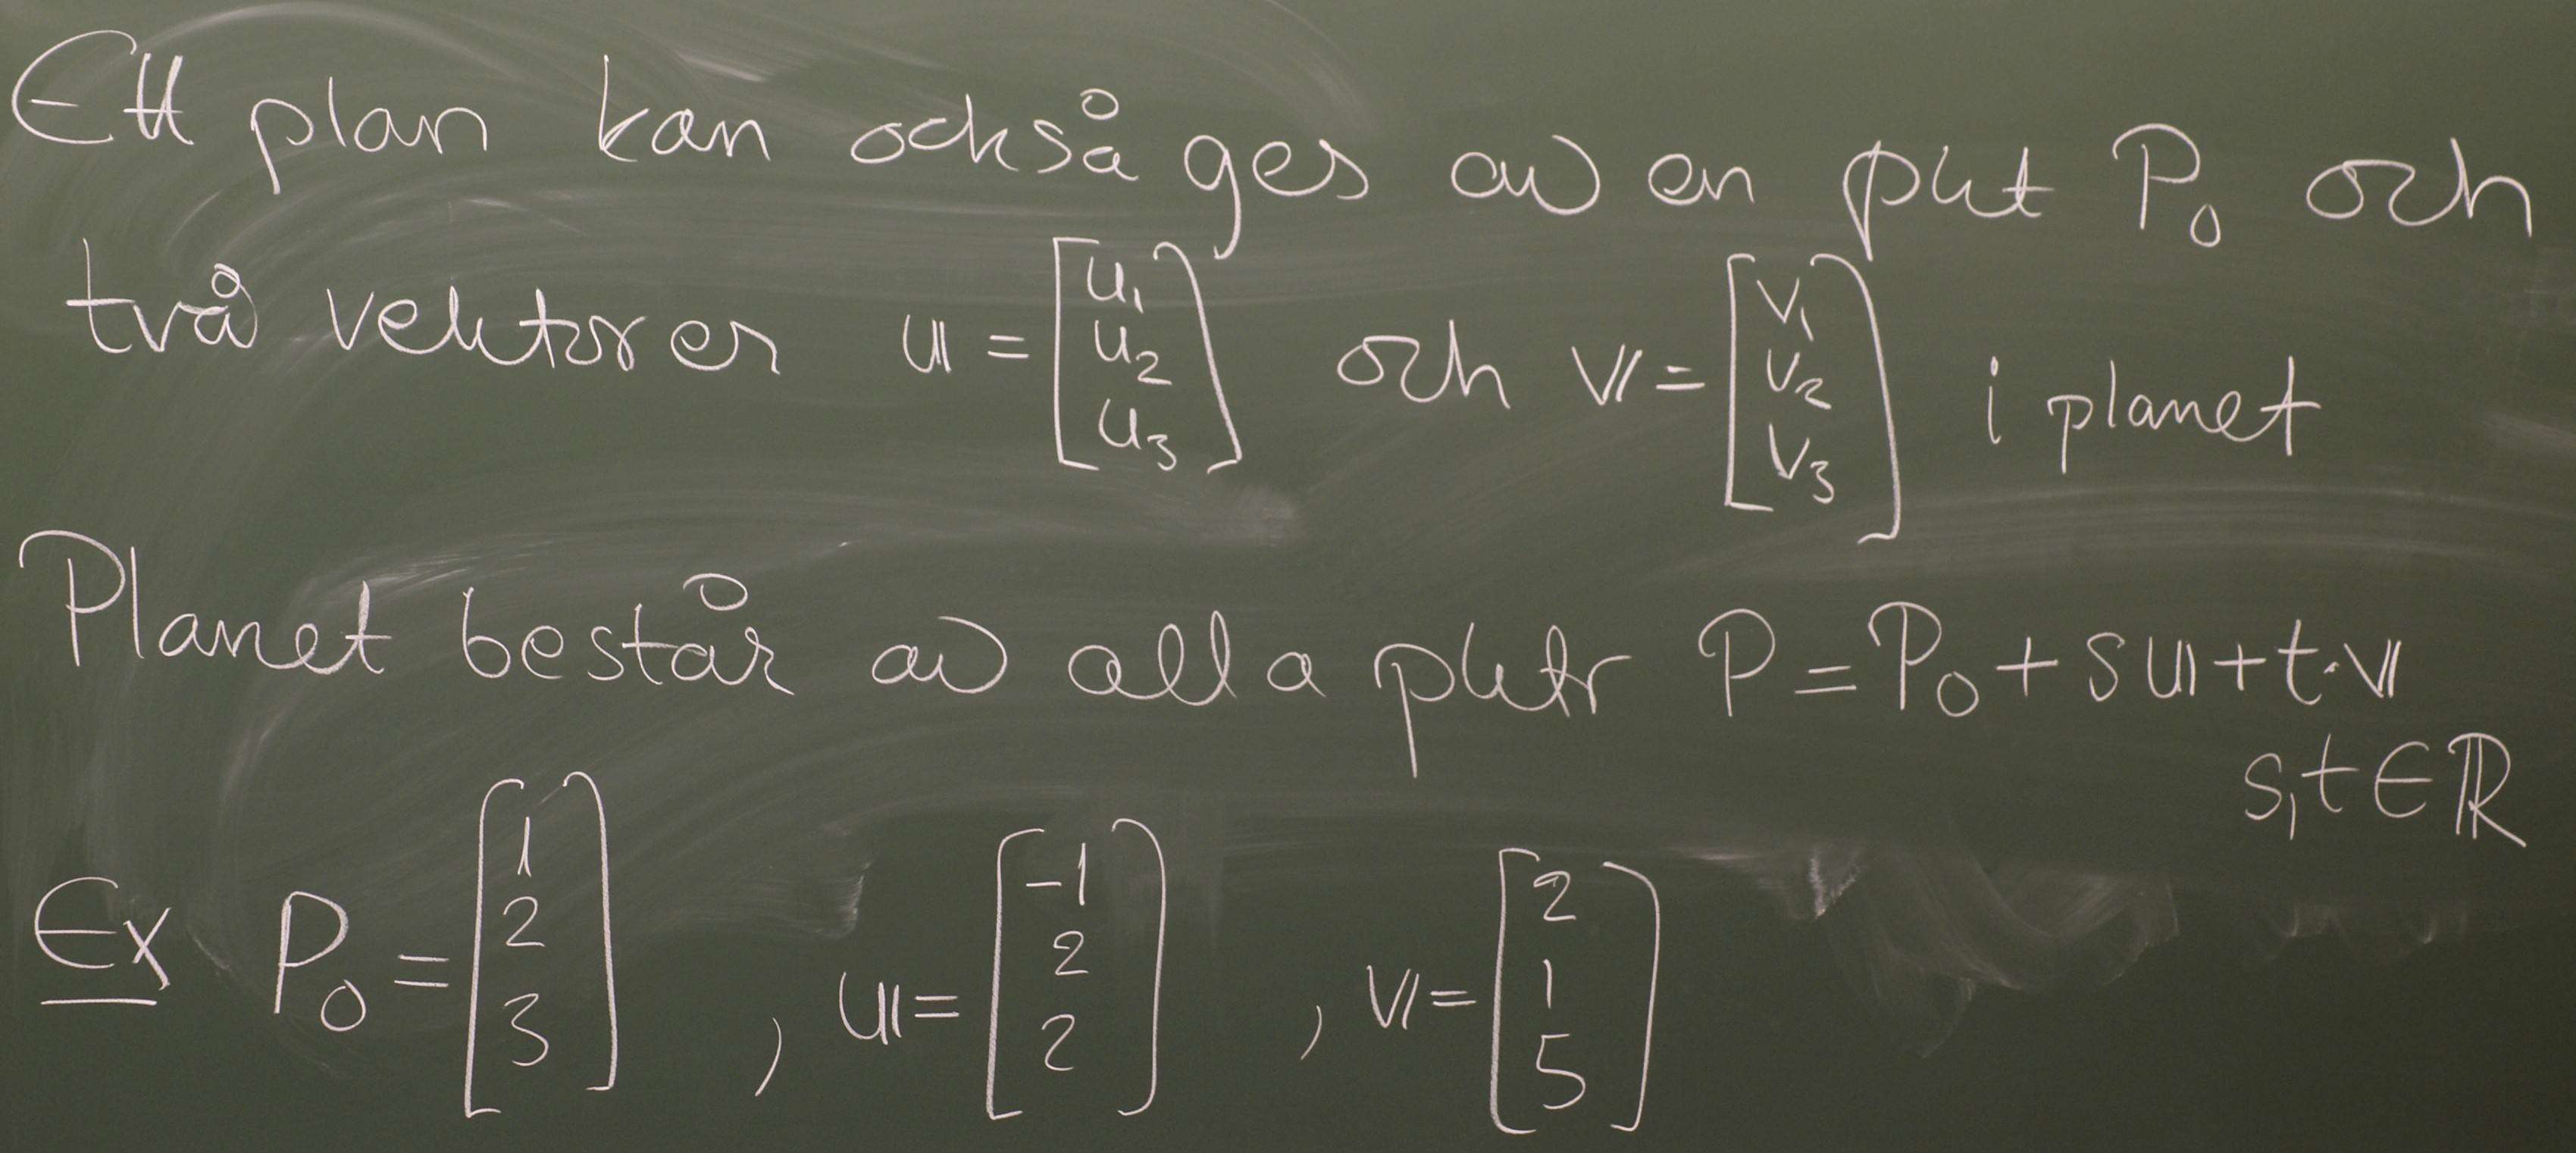 Ett plan kan också ges av en pkt P₀ och
två vektorer u = [u₁ u₂ u₃] och v = [v₁ v₂ v₃] i planet
Planet består av alla pktr P = P₀ + su + t·v
s,t ∈ ℝ
Ex P₀ = [1 2 3], u = [-1 2 2], v = [2 1 5]